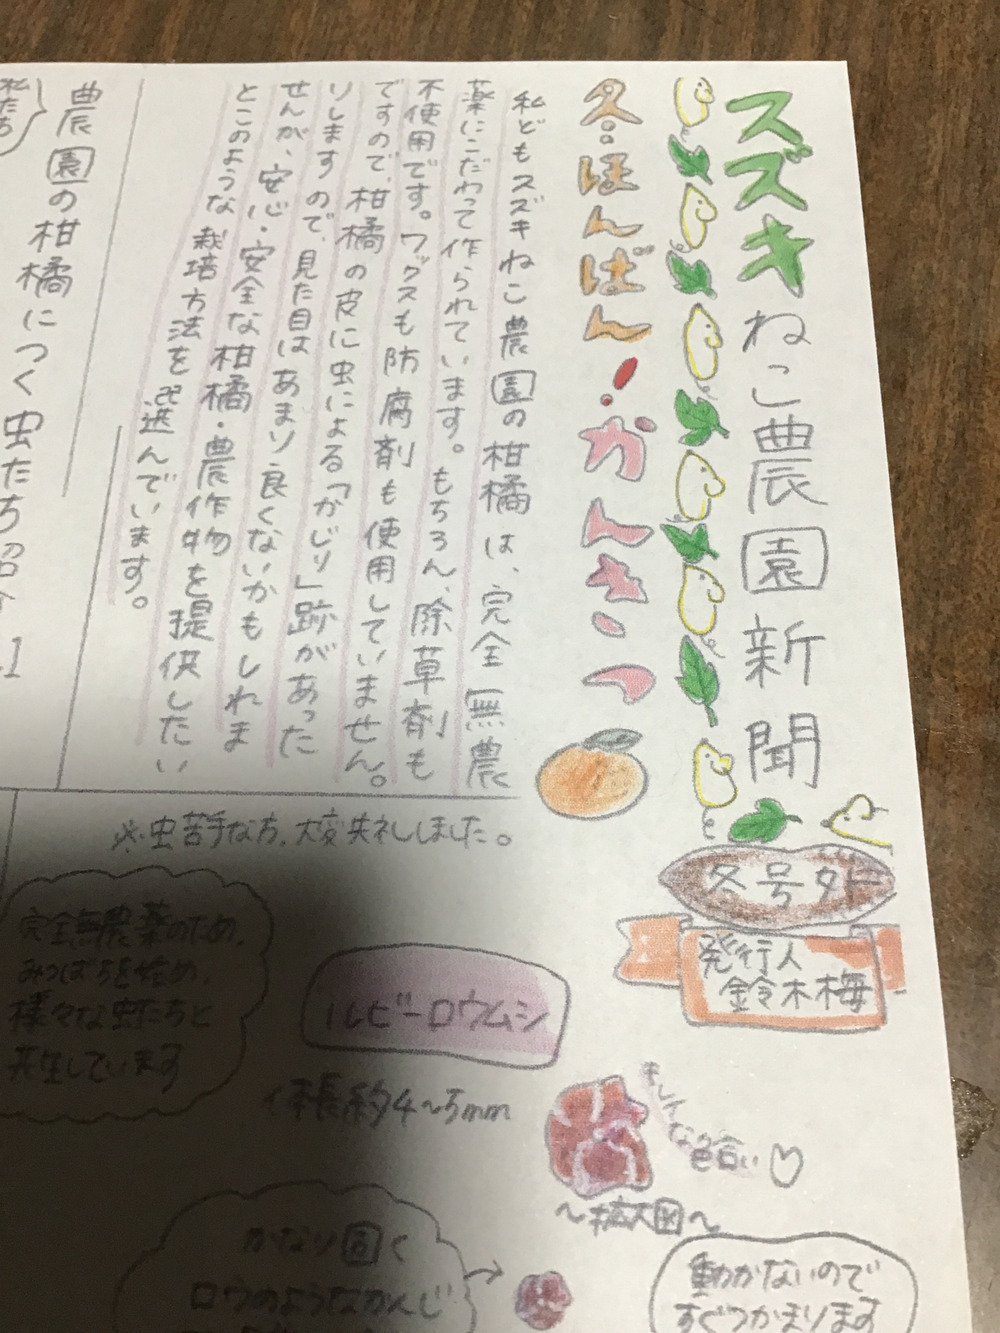 スズキねこ農園新聞
冬ほんばん!かんきつ
冬号外
発行人
鈴木梅
私どもスズキねこ農園の柑橘は、完全無農
薬にこだわって作られています。もちろん、除草剤も
不使用です。ワックスも防腐剤も使用していません。
ですので、柑橘の皮に虫による「かじり」跡があった
りしますので、見た目はあまり良くないかもしれま
せんが、安心・安全な柑橘・農作物を提供したい
とこのような栽培方法を選んでいます。
私たち
農園の柑橘につく虫たち紹介
※虫苦手な方、大変失礼しました。
ルビーロウムシ
体長約4~5mm
きれいな色合い♡
~拡大図~
完全無農薬のため、
みつばちを始め、
様々な虫たちと
共生しています
かなり固く
ロウのようなかんじ
動かないので
すぐつかまります